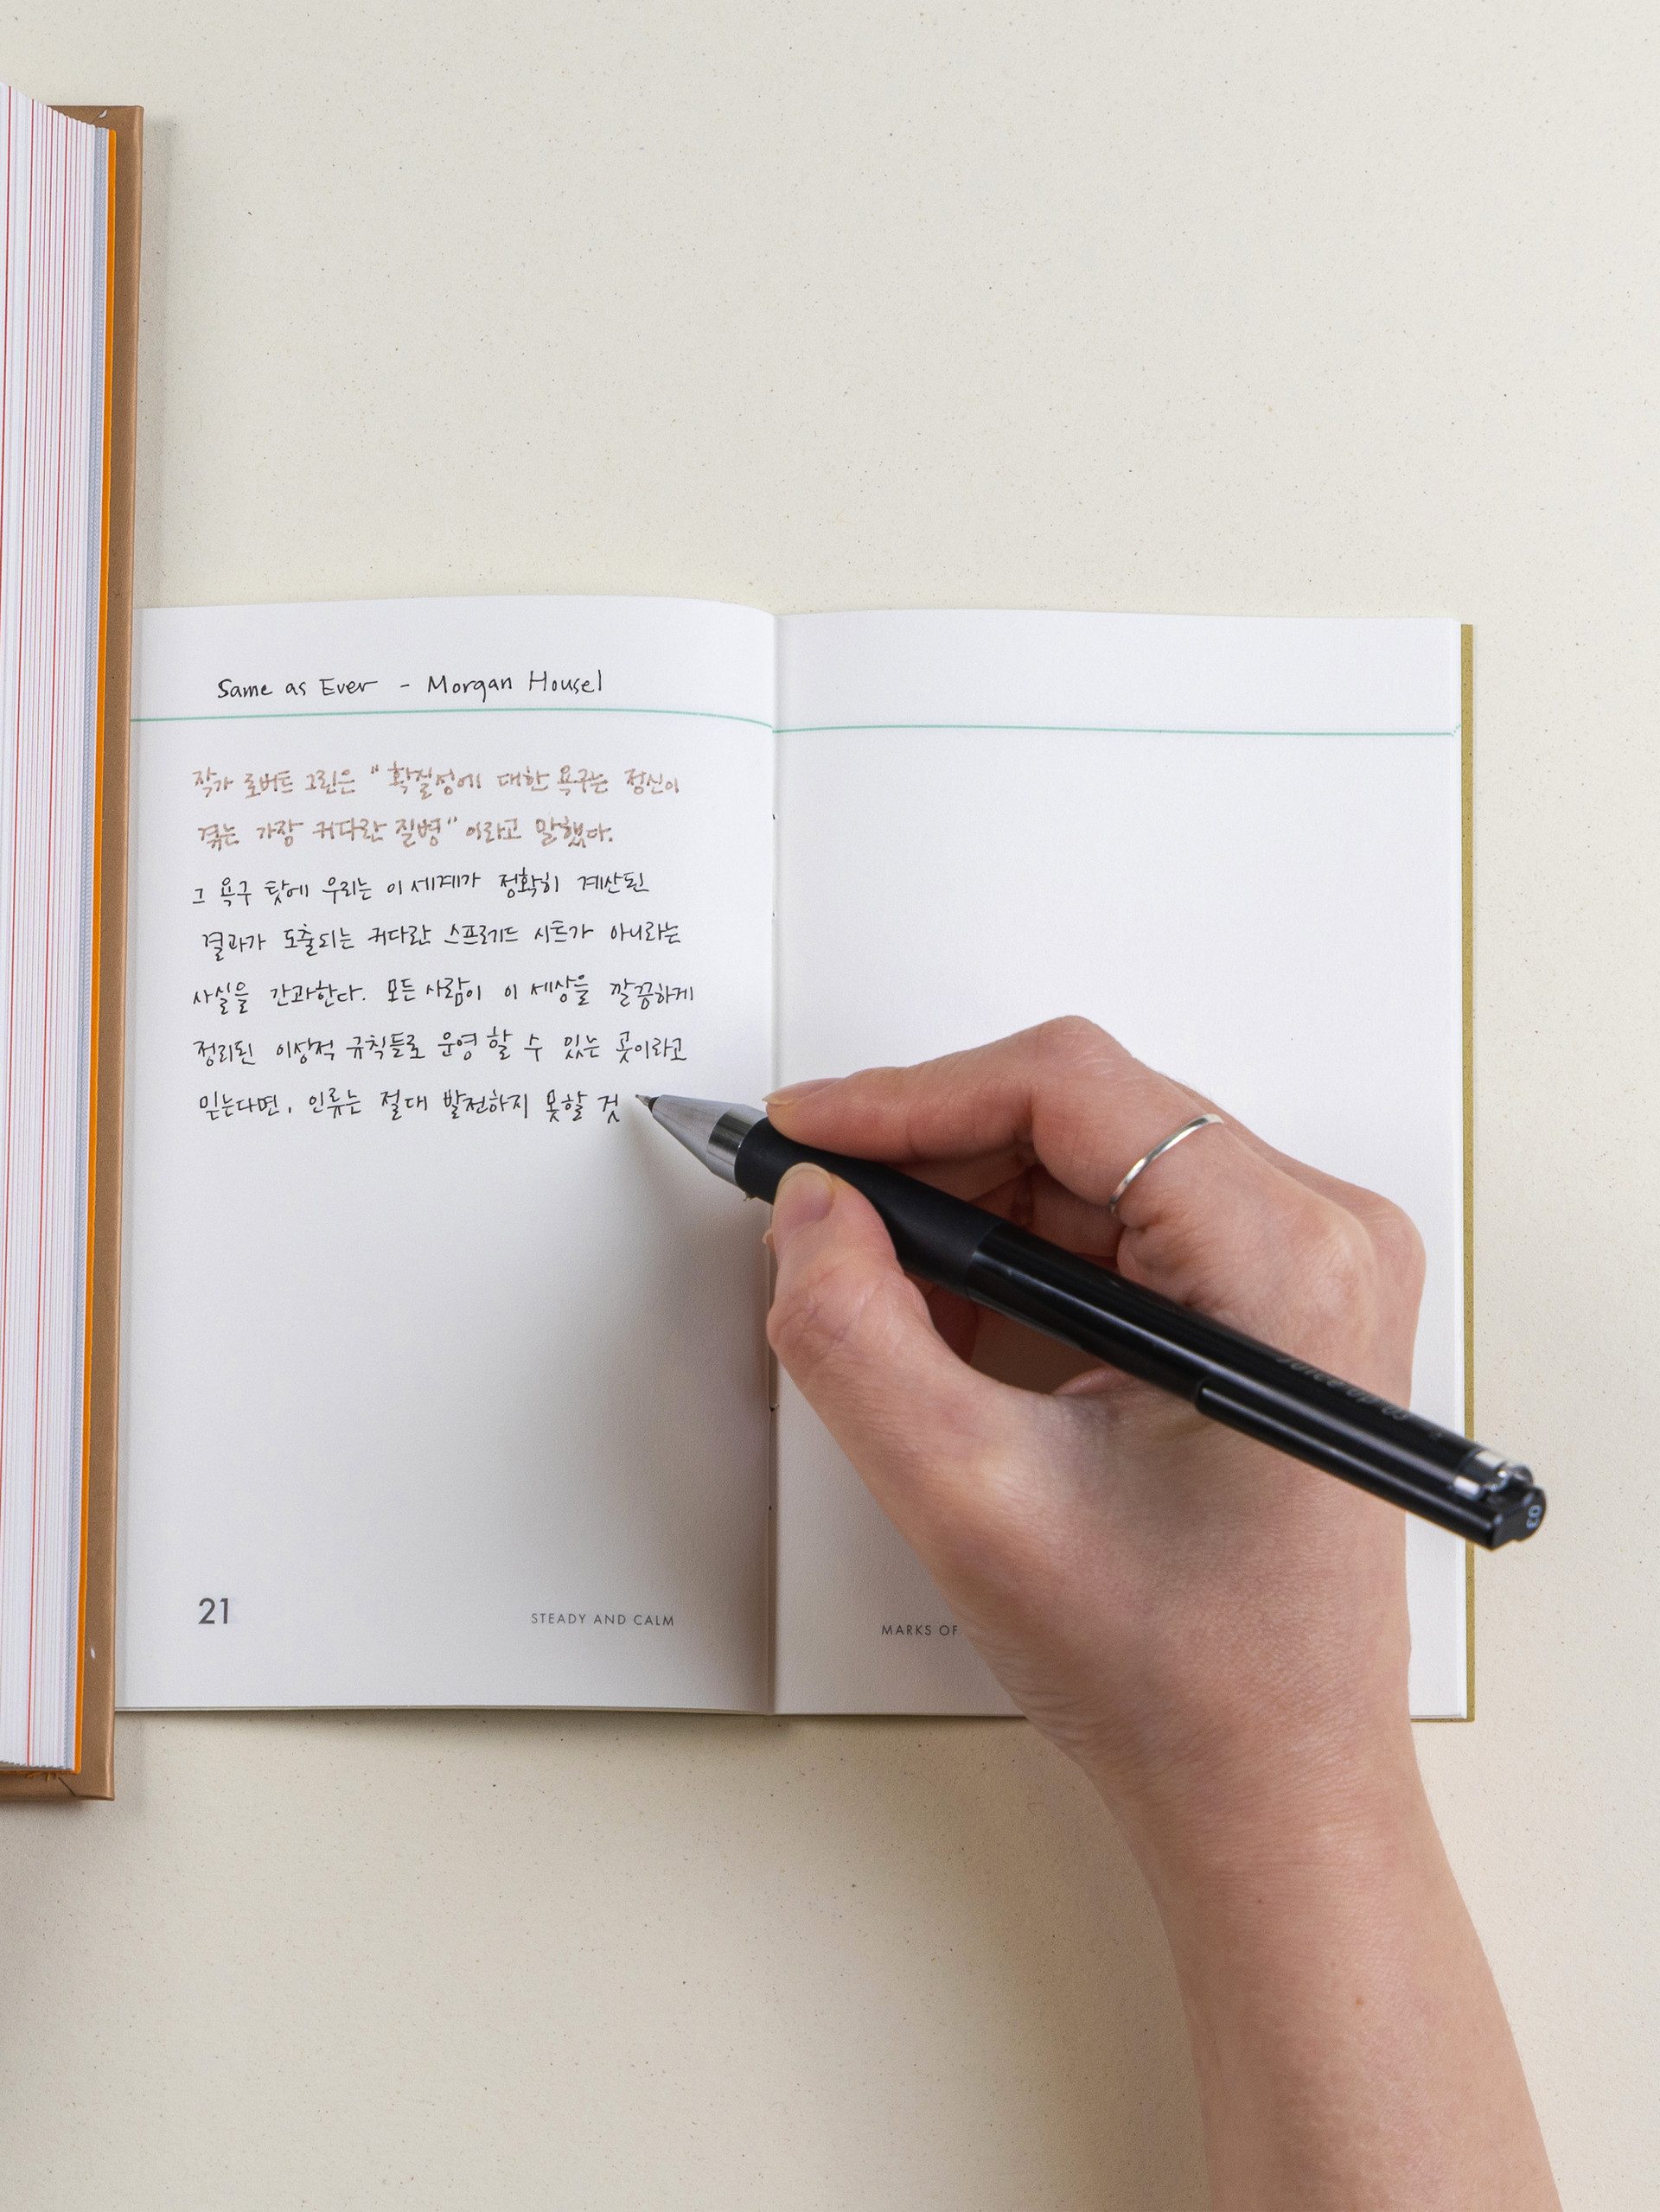 Same as Ever - Morgan Housel
작가 로버트 그린은 "확실성에 대한 욕구는 정신이
겪는 가장 커다란 질병" 이라고 말했다.
그 욕구 탓에 우리는 이 세계가 정확히 계산된
결과가 도출되는 커다란 스프레드 시트가 아니라는
사실을 간과한다. 모든 사람이 이 세상을 깔끔하게
정리된 이성적 규칙들로 운영 할 수 있는 곳이라고
믿는다면, 인류는 절대 발전하지 못할 것
21
STEADY AND CALM
MARKS OF
03